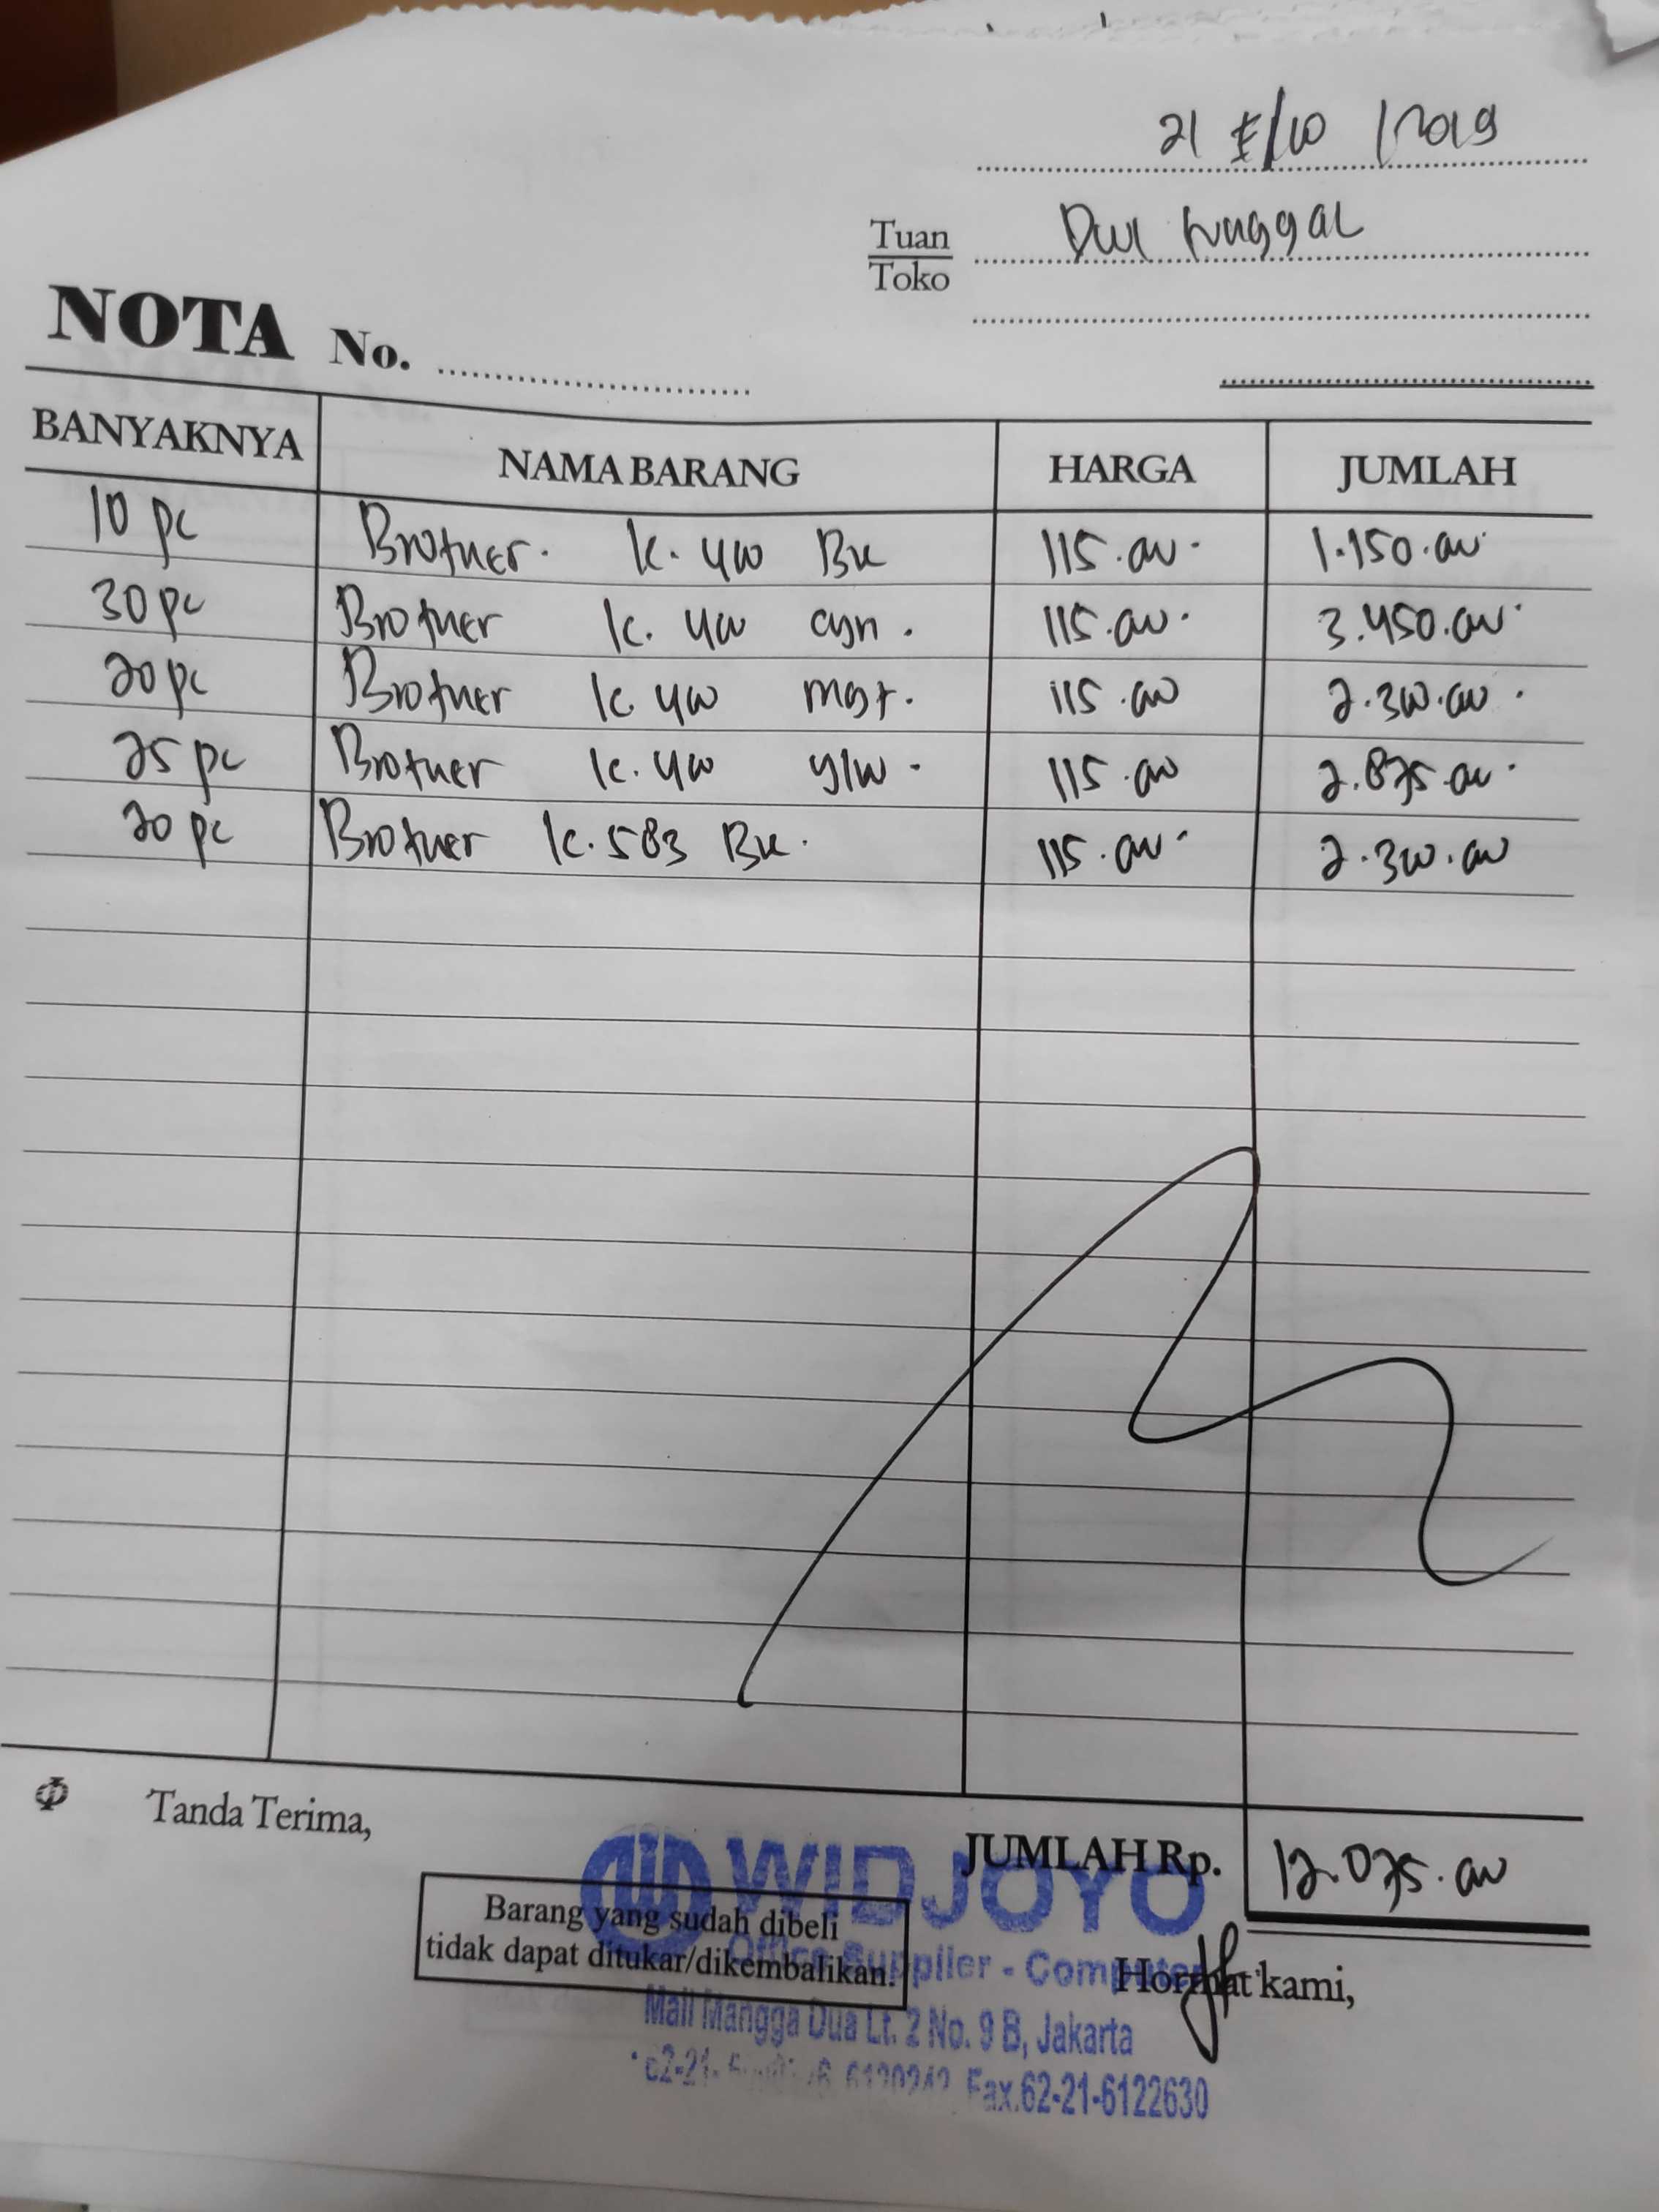 21 /10 /2019
Tuan Dwi tunggal
Toko
NOTA No.
BANYAKNYA NAMA BARANG HARGA JUMLAH
10 pc Brother. k. 400 BK 115.000. 1.150.000.
30 pc Brother k. 400 cyn. 115.000. 3.450.000.
20 pc Brother k. 400 mgt. 115.000 2.300.000.
25 pc Brother k. 400 ylw. 115.000 2.875.000.
20 pc Brother k. 583 BK. 115.000. 2.300.000
Tanda Terima,
JUMLAH Rp. 12.075.000
Barang yang sudah dibeli
tidak dapat ditukar/dikembalikan.
Hormat kami,
WIDJOYO
Office Supplier - Computer
Mall Mangga Dua Lt. 2 No. 9 B, Jakarta
Fax.62-21-6122630